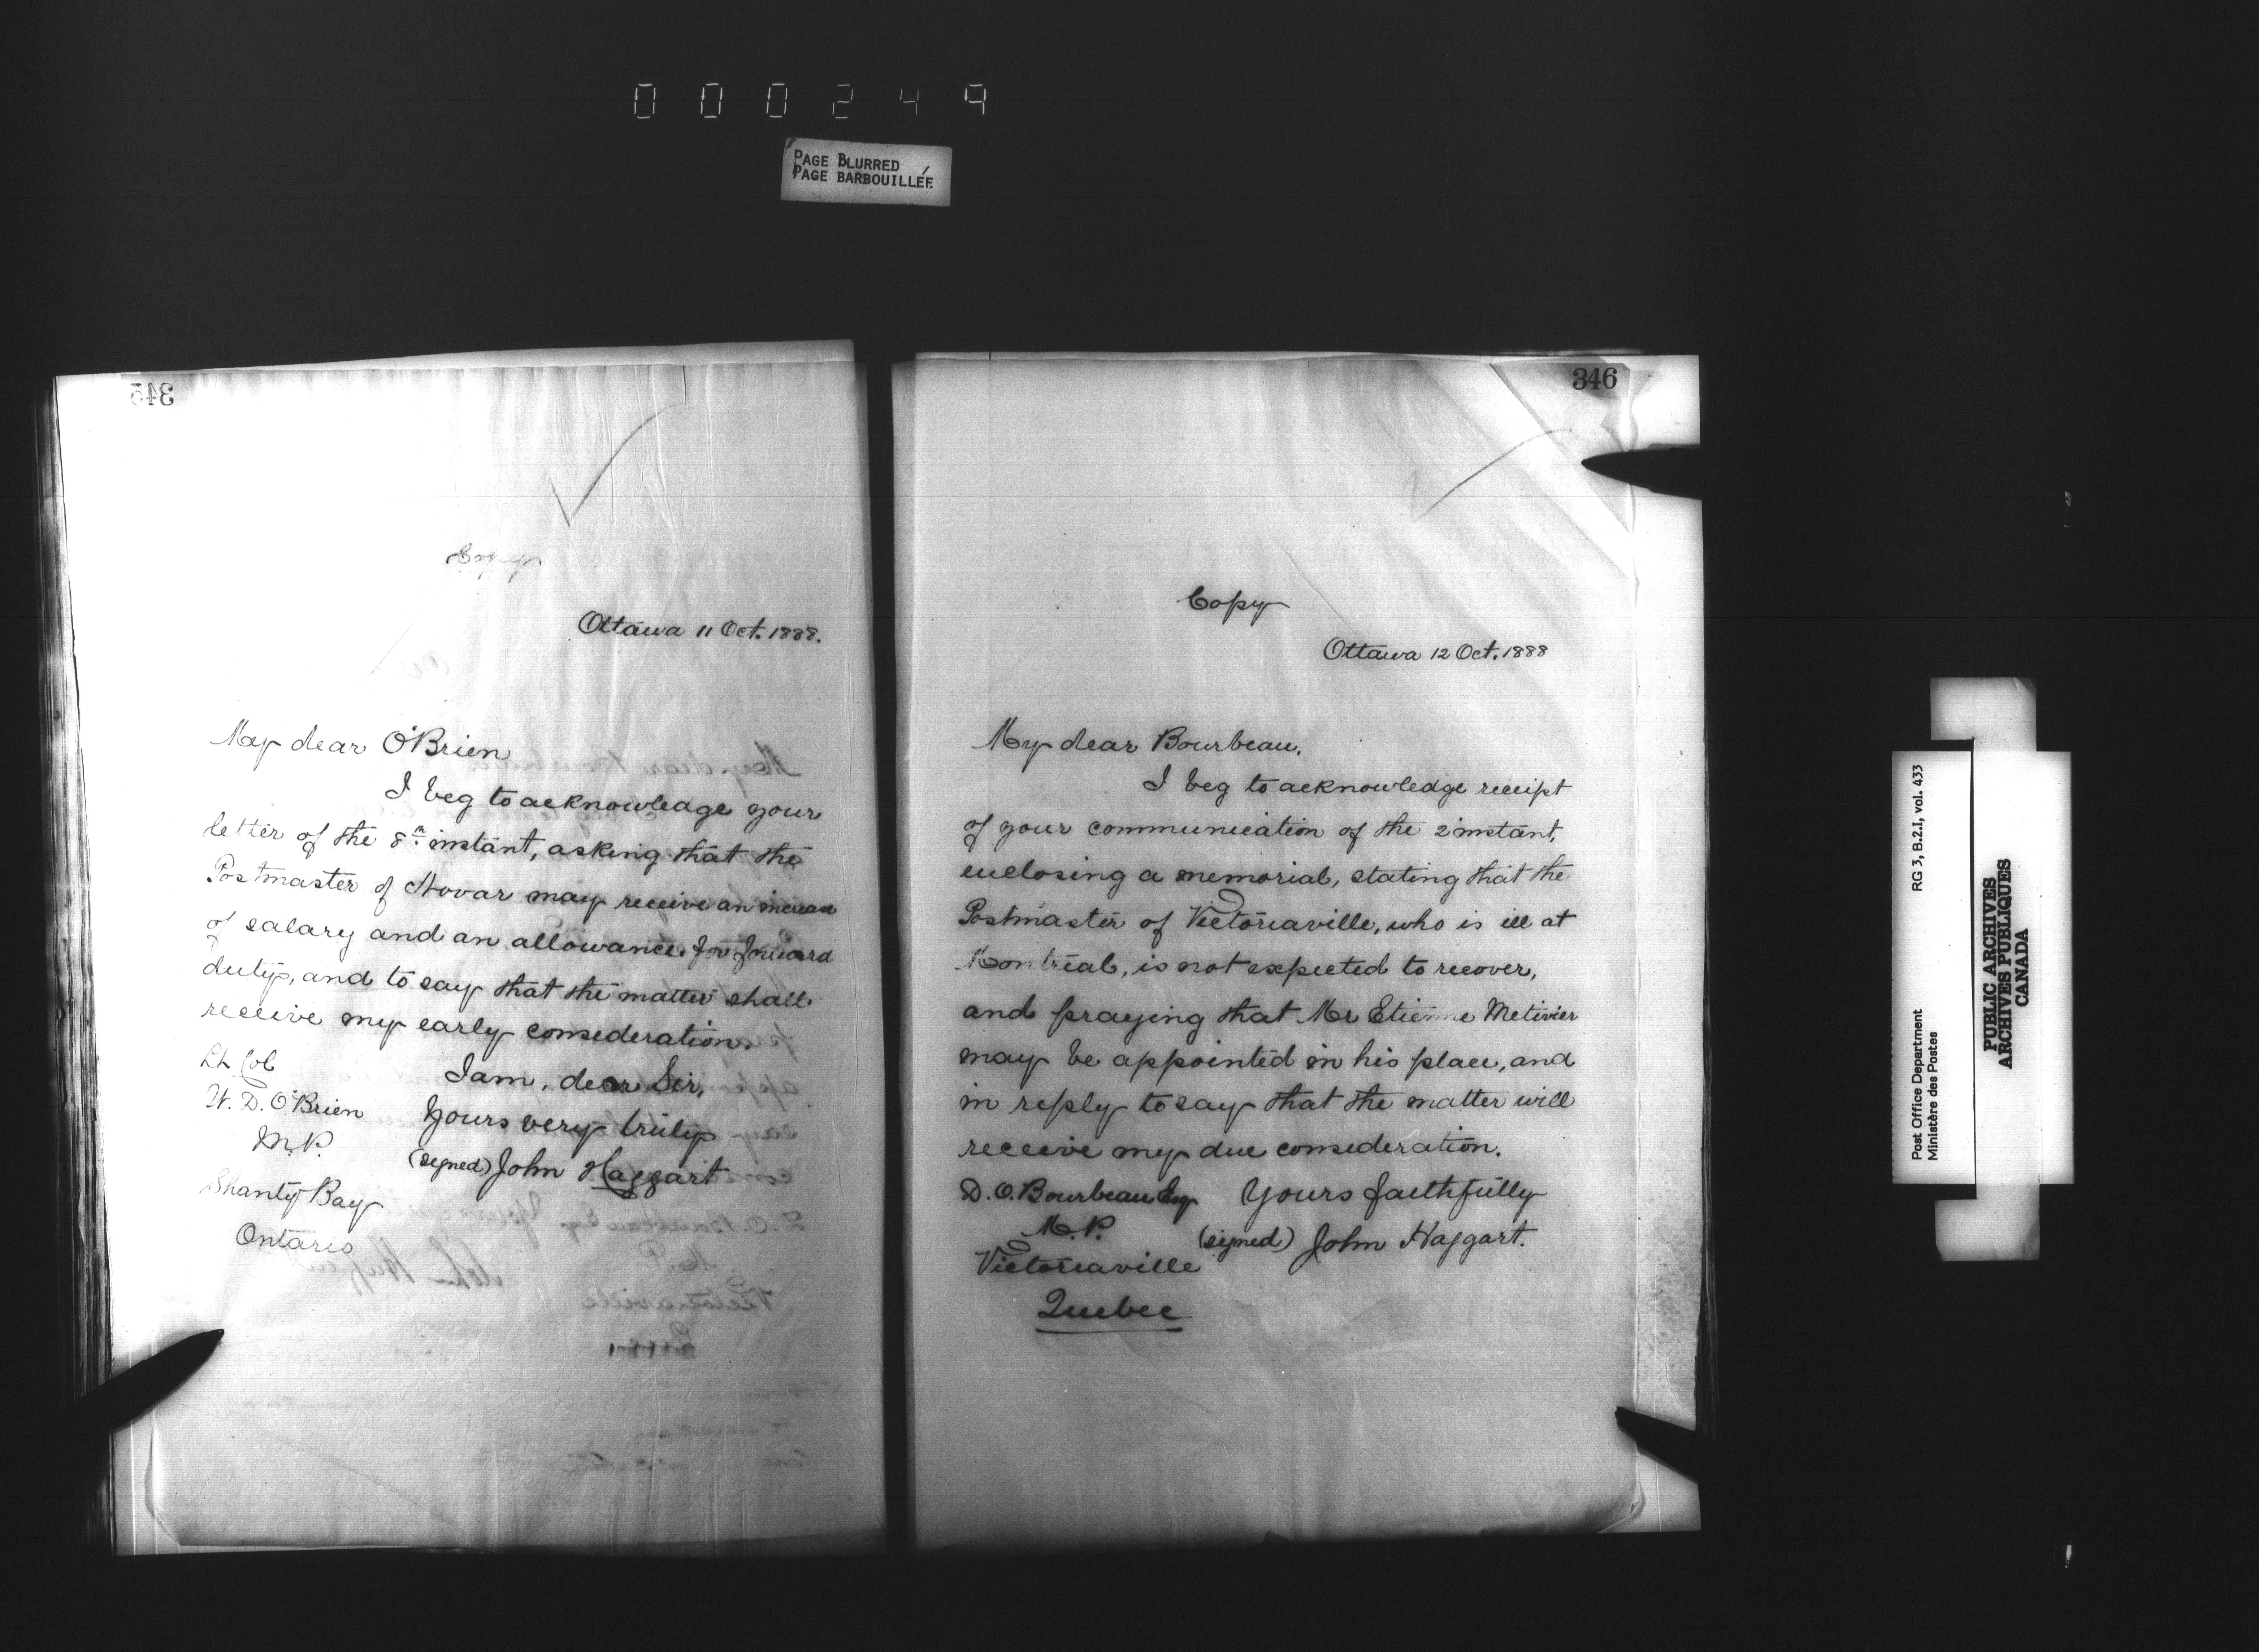 000249
PAGE BLURRED
PAGE BARBOUILLÉE
345
Copy
Ottawa 11 Oct. 1888.
My dear O'Brien
I beg to acknowledge your
letter of the 8th instant, asking that the
Postmaster of Novar may receive an increase
of salary and an allowance for forward
duty, and to say that the matter shall
receive my early consideration.
I am, dear Sir,
Yours very truly
(signed) John Haggart
Lt Col
W. D. O'Brien
M.P.
Shanty Bay
Ontario
346
Copy
Ottawa 12 Oct. 1888
My dear Bourbeau.
I beg to acknowledge receipt
of your communication of the 2 instant,
enclosing a memorial, stating that the
Postmaster of Victoriaville, who is ill at
Montreal, is not expected to recover,
and praying that Mr Etienne Metivier
may be appointed in his place, and
in reply to say that the matter will
receive my due consideration.
Yours faithfully
(signed) John Haggart.
D. O. Bourbeau Esq
M.P.
Victoriaville
Quebec
RG 3, B.2.I, vol. 433
Post Office Department
Ministère des Postes
PUBLIC ARCHIVES
ARCHIVES PUBLIQUES
CANADA